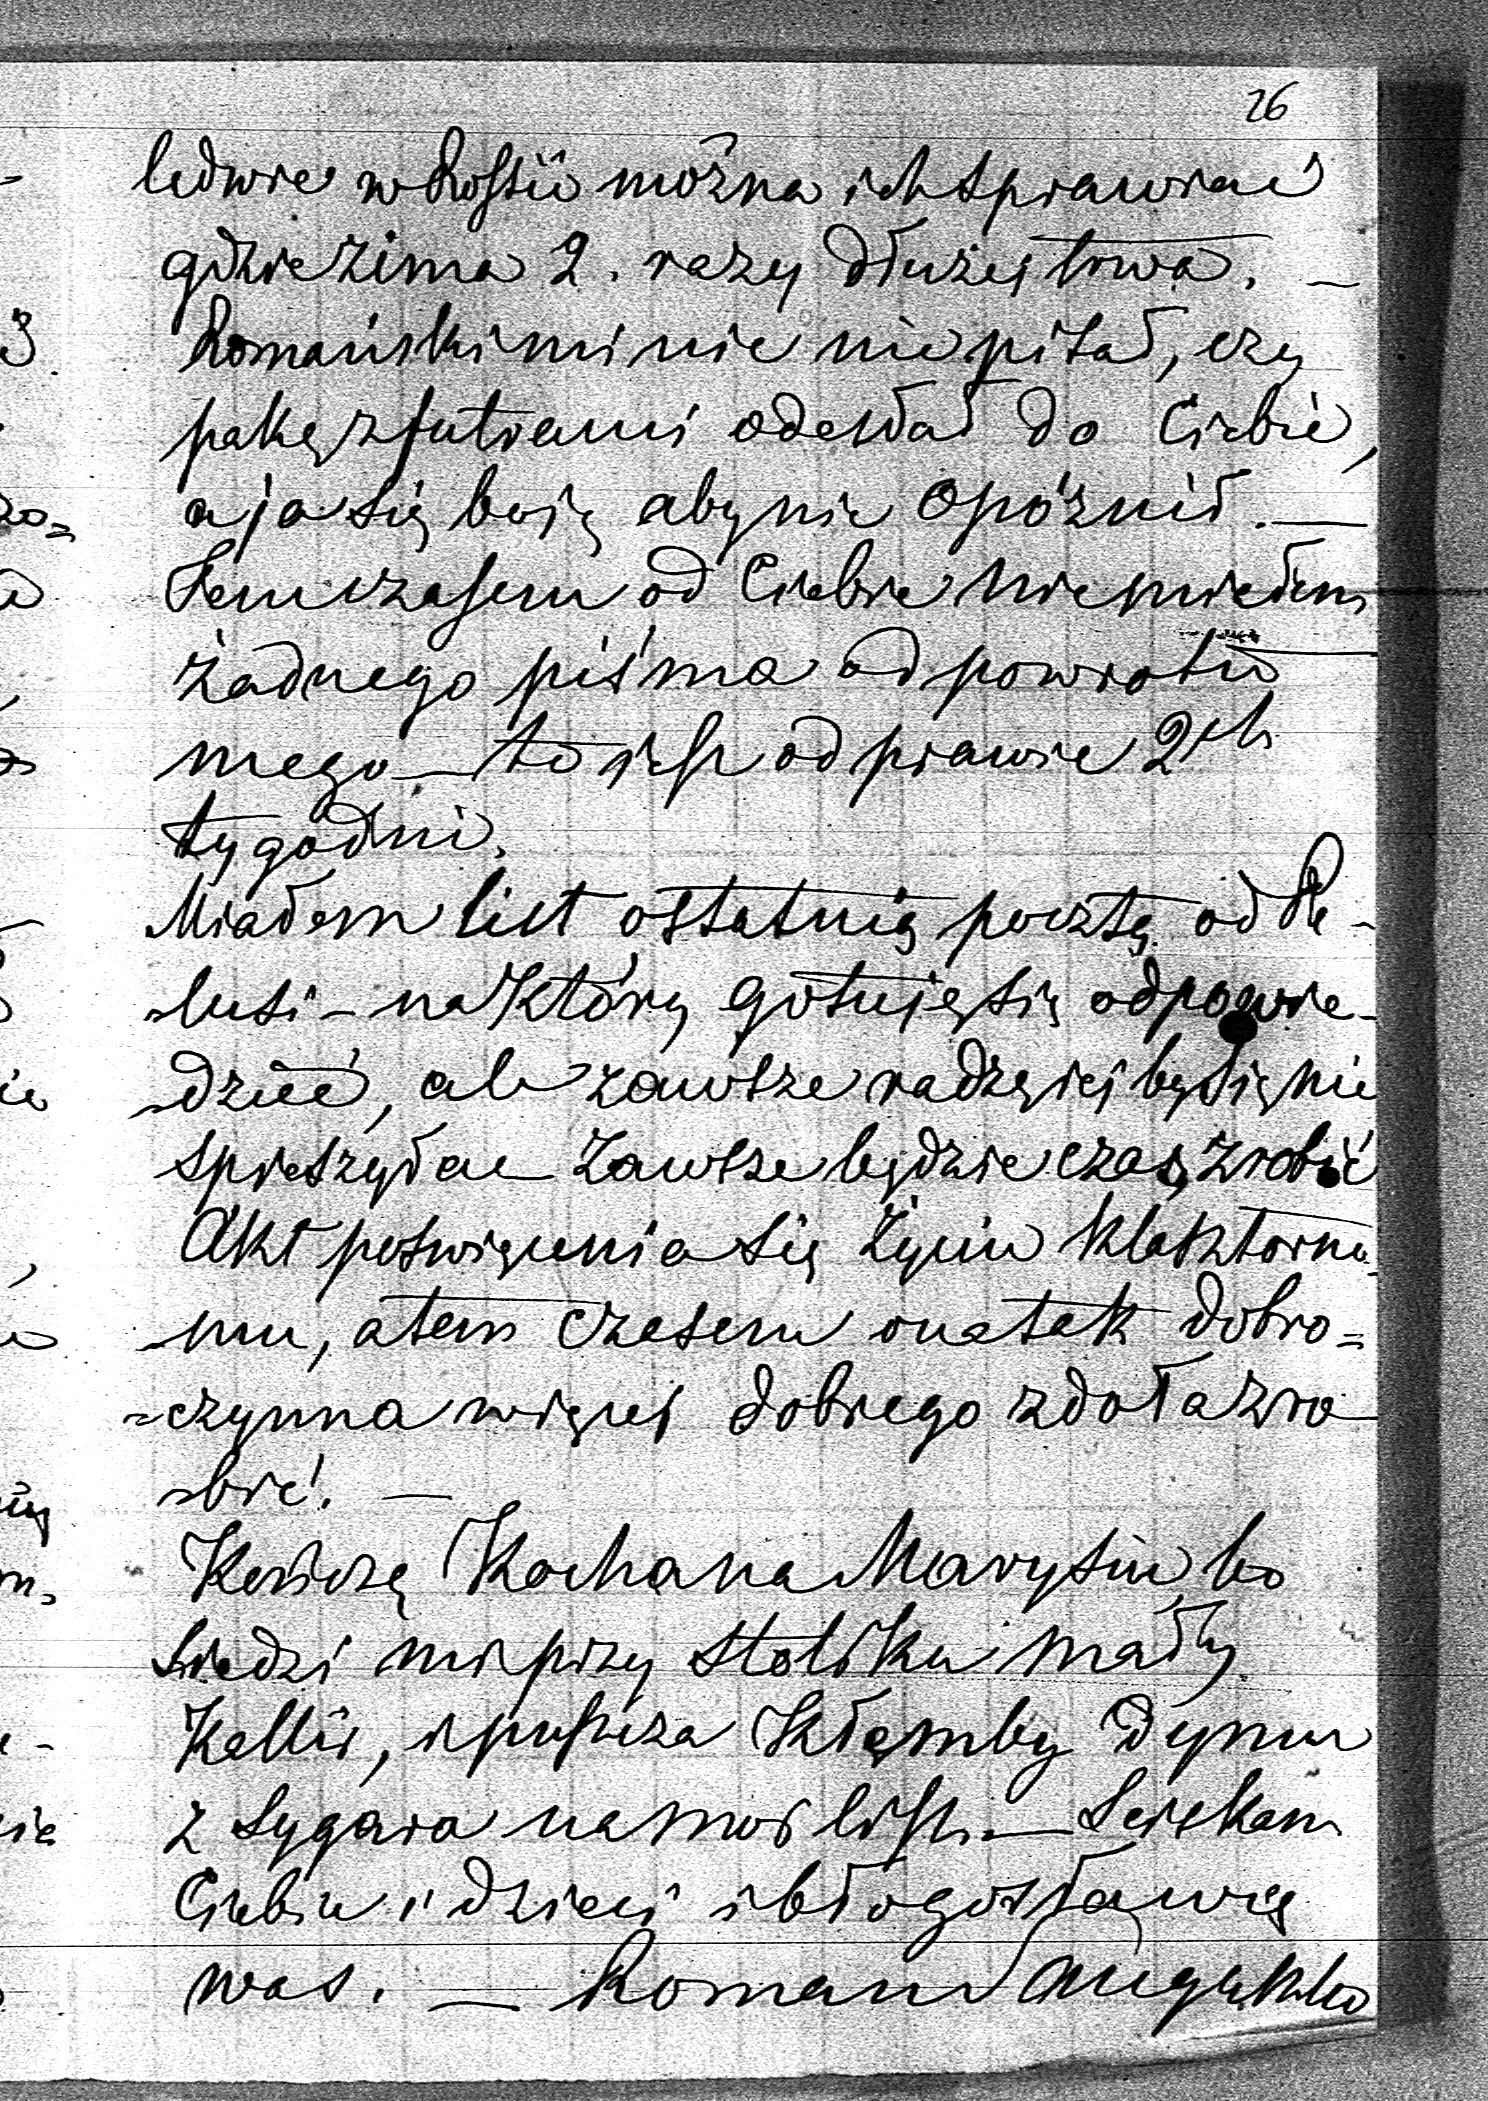 26
ledwie w Rossii można ich sprawiać
gdzie zima 2. razy dłużej trwa. —
Romański mi nic nie pisał, czy
pakę z futrami odesłał do Ciebie,
a ja się boję aby nie opóźnił. —
Tem czasem od Ciebie nie miałem
żadnego pisma od powrotu
mego — to jest od prawie 2ch
tygodni.
Miałem list ostatnią pocztą od He-
lusi – na który gotuję się odpowie-
dzieć, ale zawsze radzę jej by się nie
spieszyła — Zawsze będzie czas zrobić
Akt poświęcenia się życiu klasztorne-
mu, a tem czasem ona tak dobro-
czynna więcej dobrego zdoła zro-
bić. —
Kończę Kochana Marysiu bo
siedzi mi przy stoliku mały
i puszcza kłęmby dymu
z sygara na moi list. — Sciskam
Ciebie i dzieci i błogosławię
was. — Roman Sanguszko